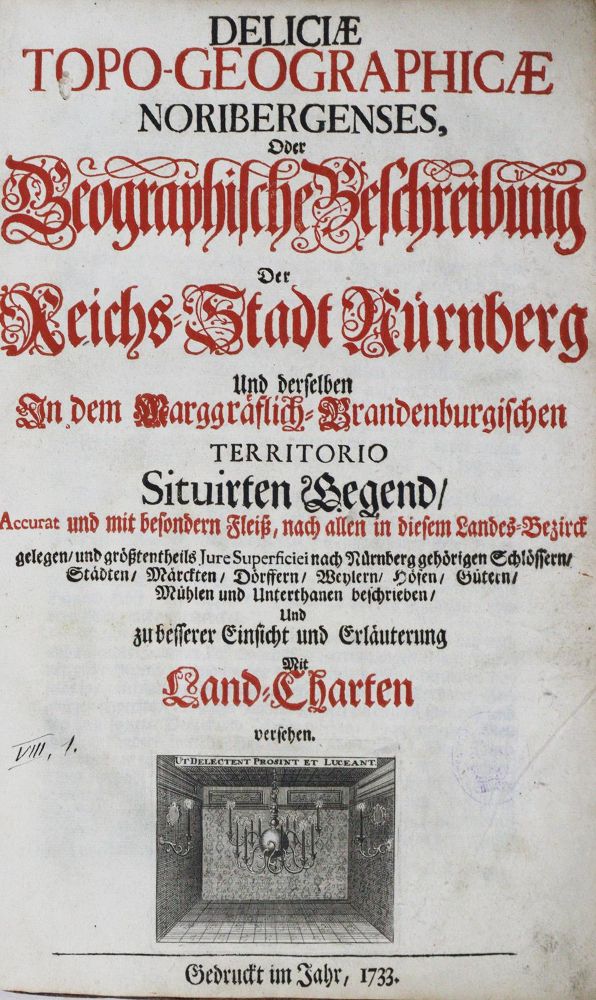 DELICIÆ
TOPO-GEOGRAPHICÆ
NORIBERGENSES,
Oder
Geographische Beschreibung
Der
Reichs-Stadt Nürnberg
Und derselben
In dem Marggräflich-Brandenburgischen
TERRITORIO
Situirten Gegend/
Accurat und mit besondern Fleiß, nach allen in diesem Landes-Bezirck
gelegen/ und größtentheils Jure Superficiei nach Nürnberg gehörigen Schlössern/
Städten/ Märckten/ Dörffern/ Weylern/ Höfen/ Gütern/
Mühlen und Unterthanen beschrieben/
Und
zu besserer Einsicht und Erläuterung
Mit
Land-Charten
versehen.
VIII, 1.
UT DELECTENT PROSINT ET LUCEANT.
Gedruckt im Jahr, 1733.